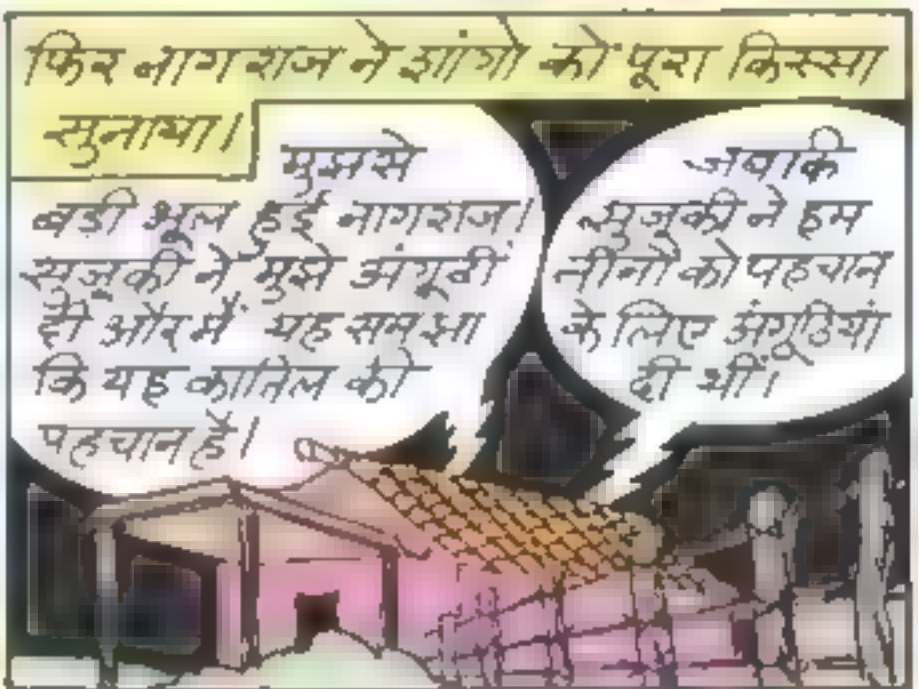 फिर नागराज ने शांगो को पूरा किस्सा
सुनाया।
मुझसे
बड़ी भूल हुई नागराज।
सुजुकी ने मुझे अंगूठी
दी और मैं यह समझा
कि यह कातिल की
पहचान है।
जबकि
सुजुकी ने हम
तीनों को पहचान
के लिए अंगूठियां
दी थीं।